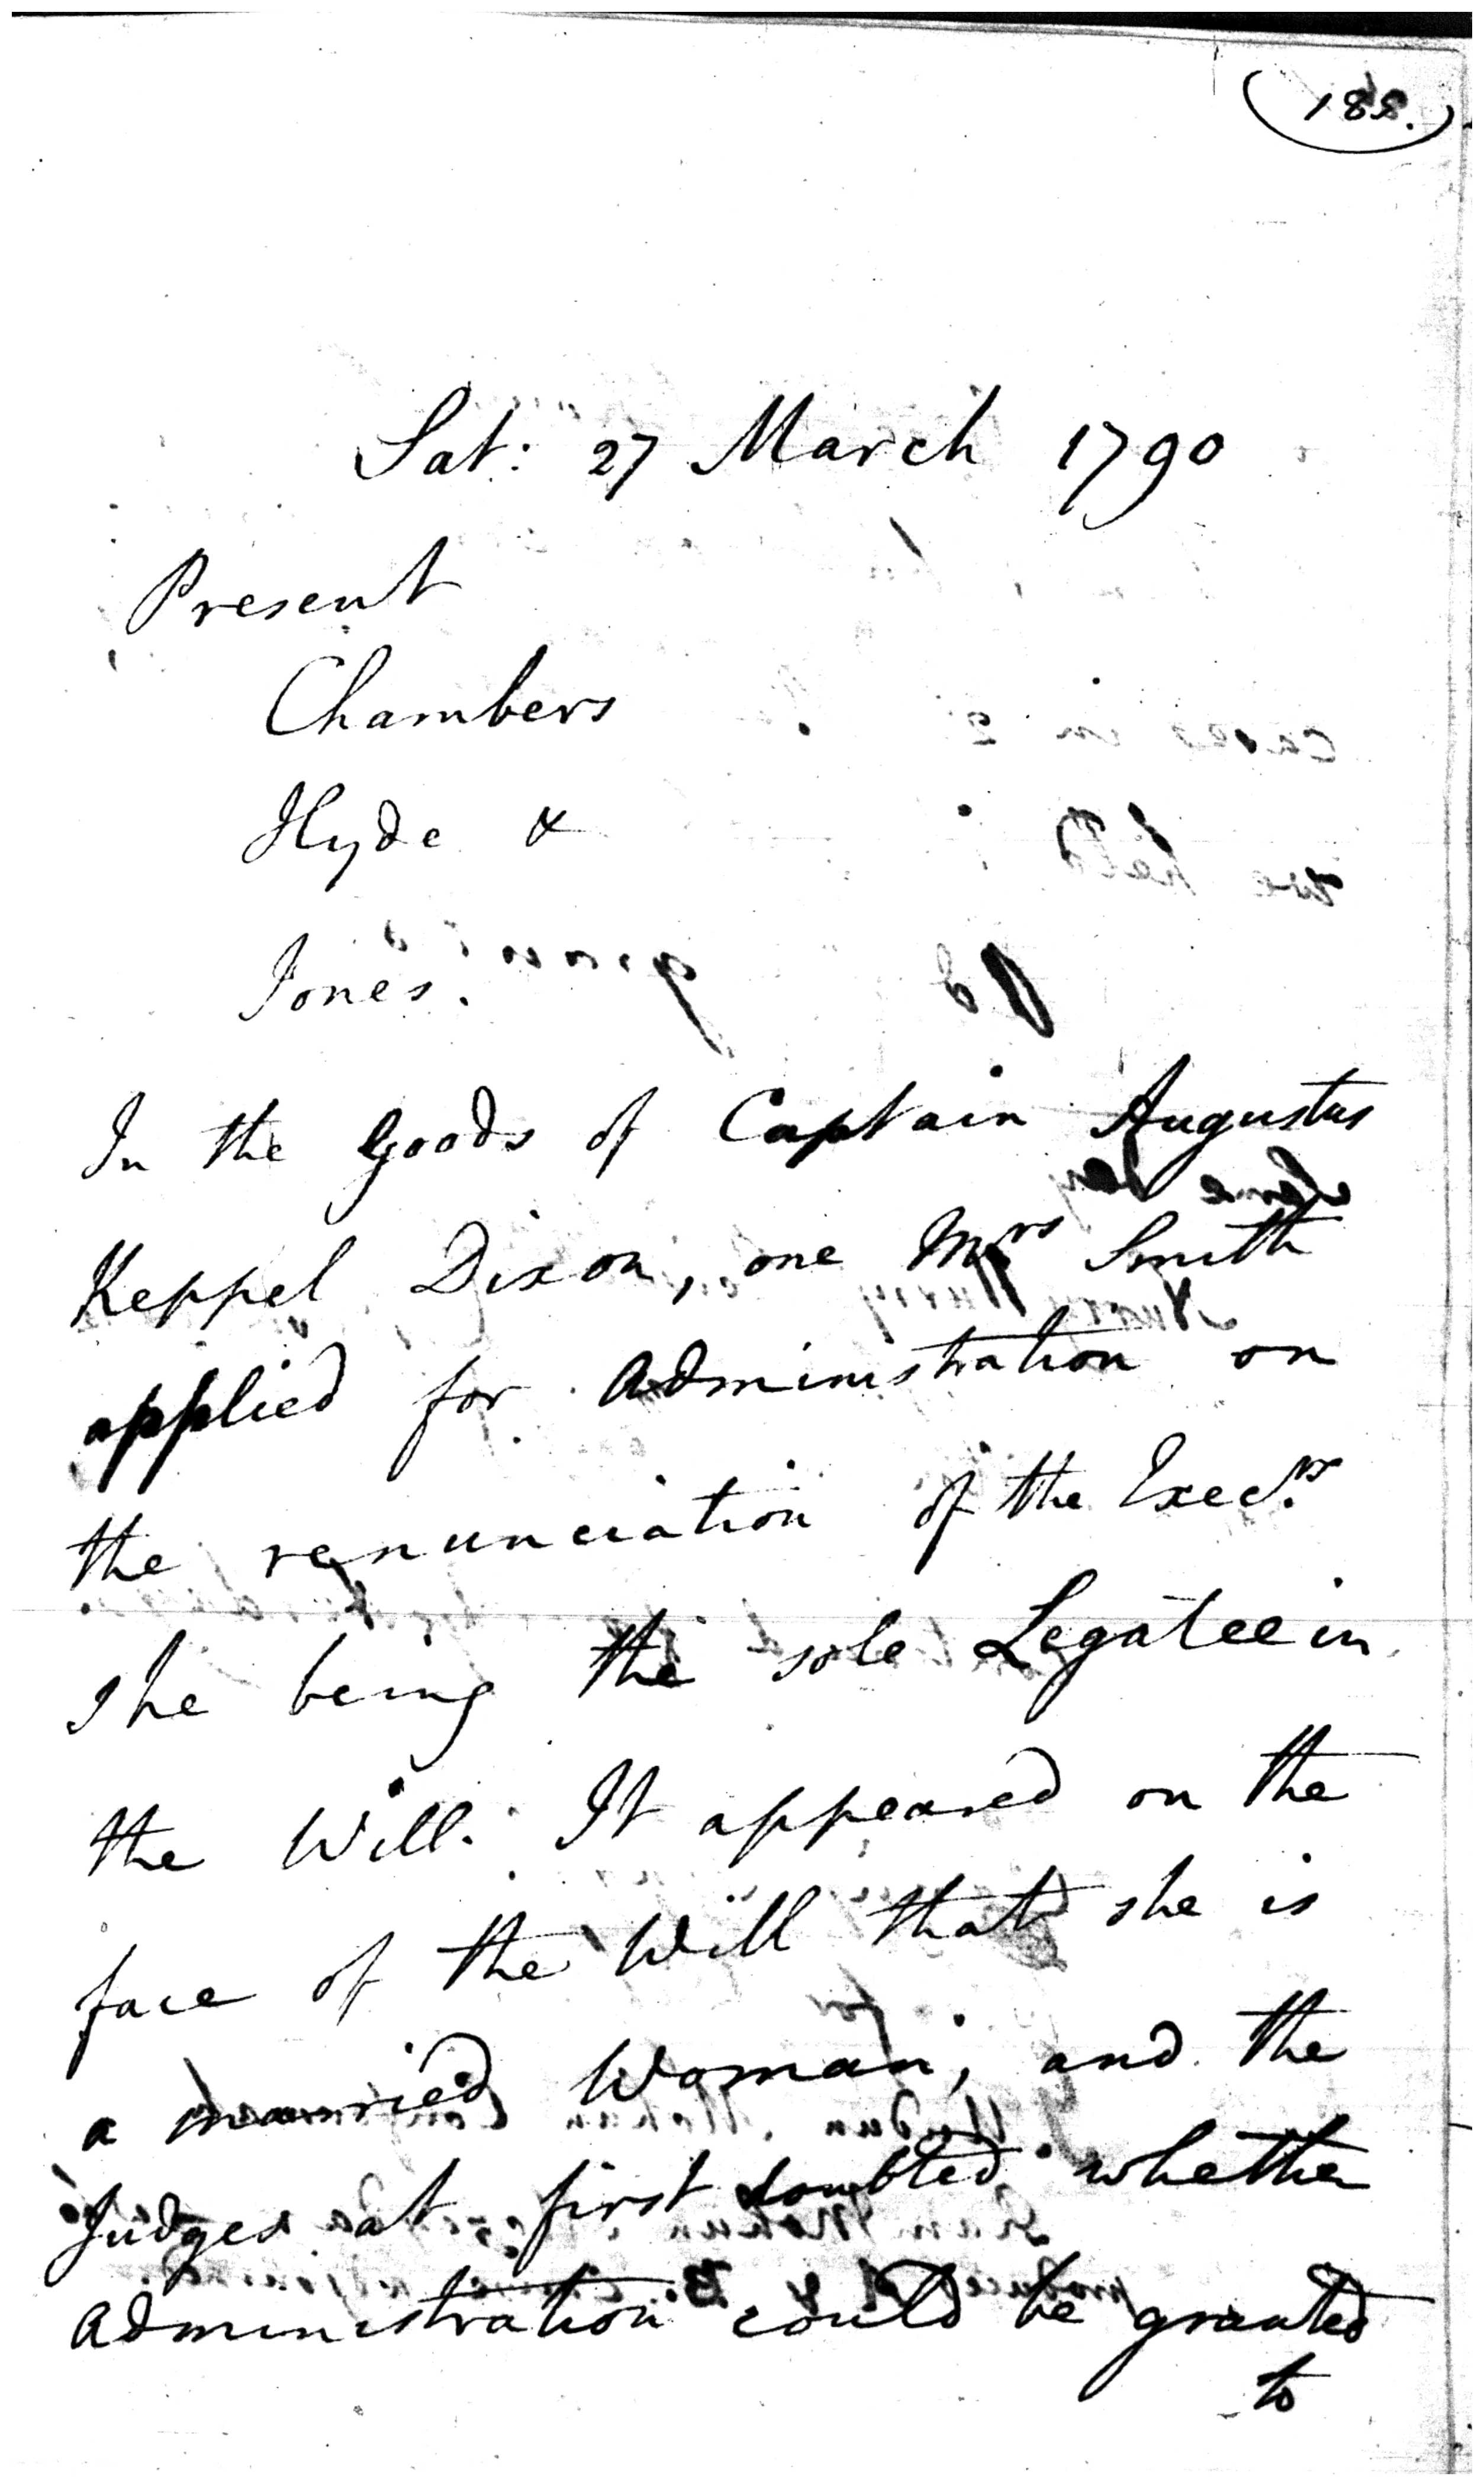 Sat: 27 March 1790
Present
Chambers
Hyde &
Jones.
In the Goods of Captain Augustus
Keppel Dixon, one Mrs Smith
applied for Administration on
the renunciation of the Exec.rs
she being the sole Legatee in
the Will. It appeared on the
face of the Will that she is
a married Woman, and the
Judges at first doubted whether
administration could be granted
to